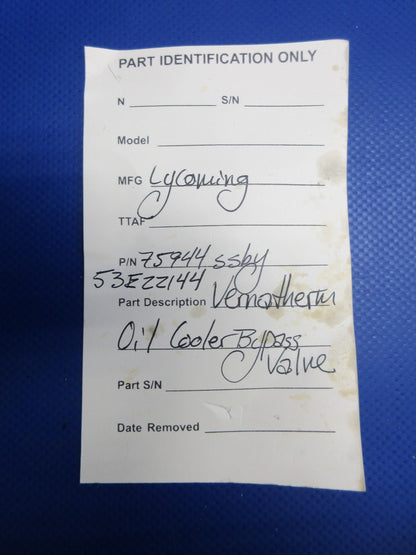 PART IDENTIFICATION ONLY
N ____________ S/N ____________
Model ____________
MFG Lycoming
TTAF ____________
P/N 75944 ssby
53E22144
Part Description Vernatherm
Oil Cooler Bypass
Valve
Part S/N ____________
Date Removed ____________